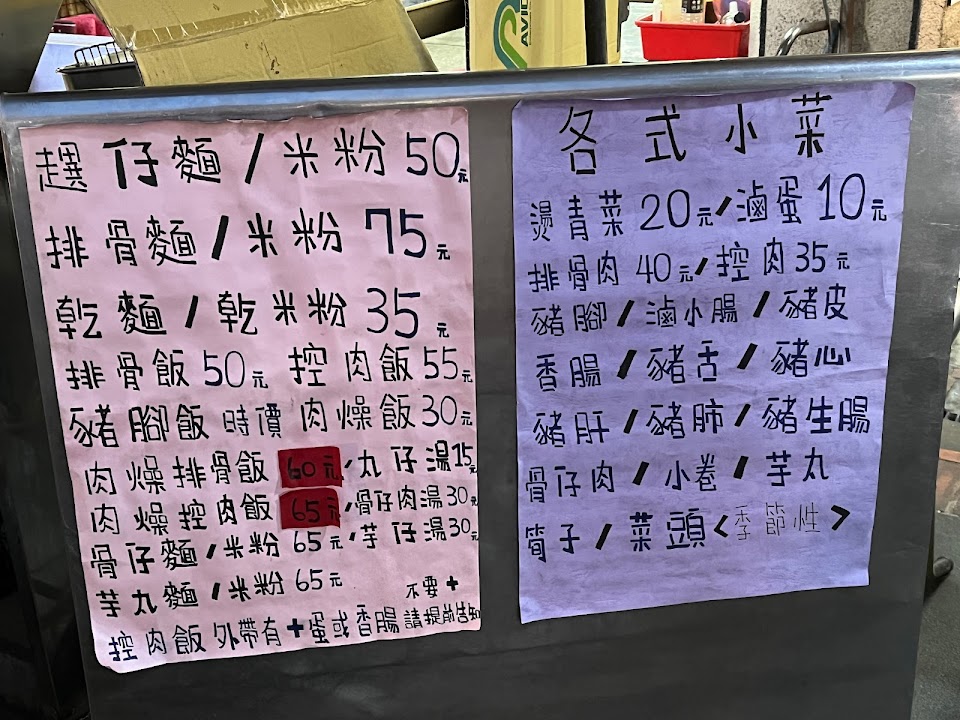 AVID
趩仔麵/米粉50元
排骨麵/米粉75元
乾麵/乾米粉35元
排骨飯50元 控肉飯55元
豬腳飯時價 肉燥飯30元
肉燥排骨飯60元/丸仔湯15元
肉燥控肉飯65元/骨仔肉湯30元
骨仔麵/米粉65元/芋仔湯30元
芋丸麵/米粉65元
不要+
控肉飯外帶有+蛋或香腸請提前告知
各式小菜
燙青菜20元/滷蛋10元
排骨肉40元/控肉35元
豬腳/滷小腸/豬皮
香腸/豬舌/豬心
豬肝/豬肺/豬生腸
骨仔肉/小卷/芋丸
筍子/菜頭<季節性>